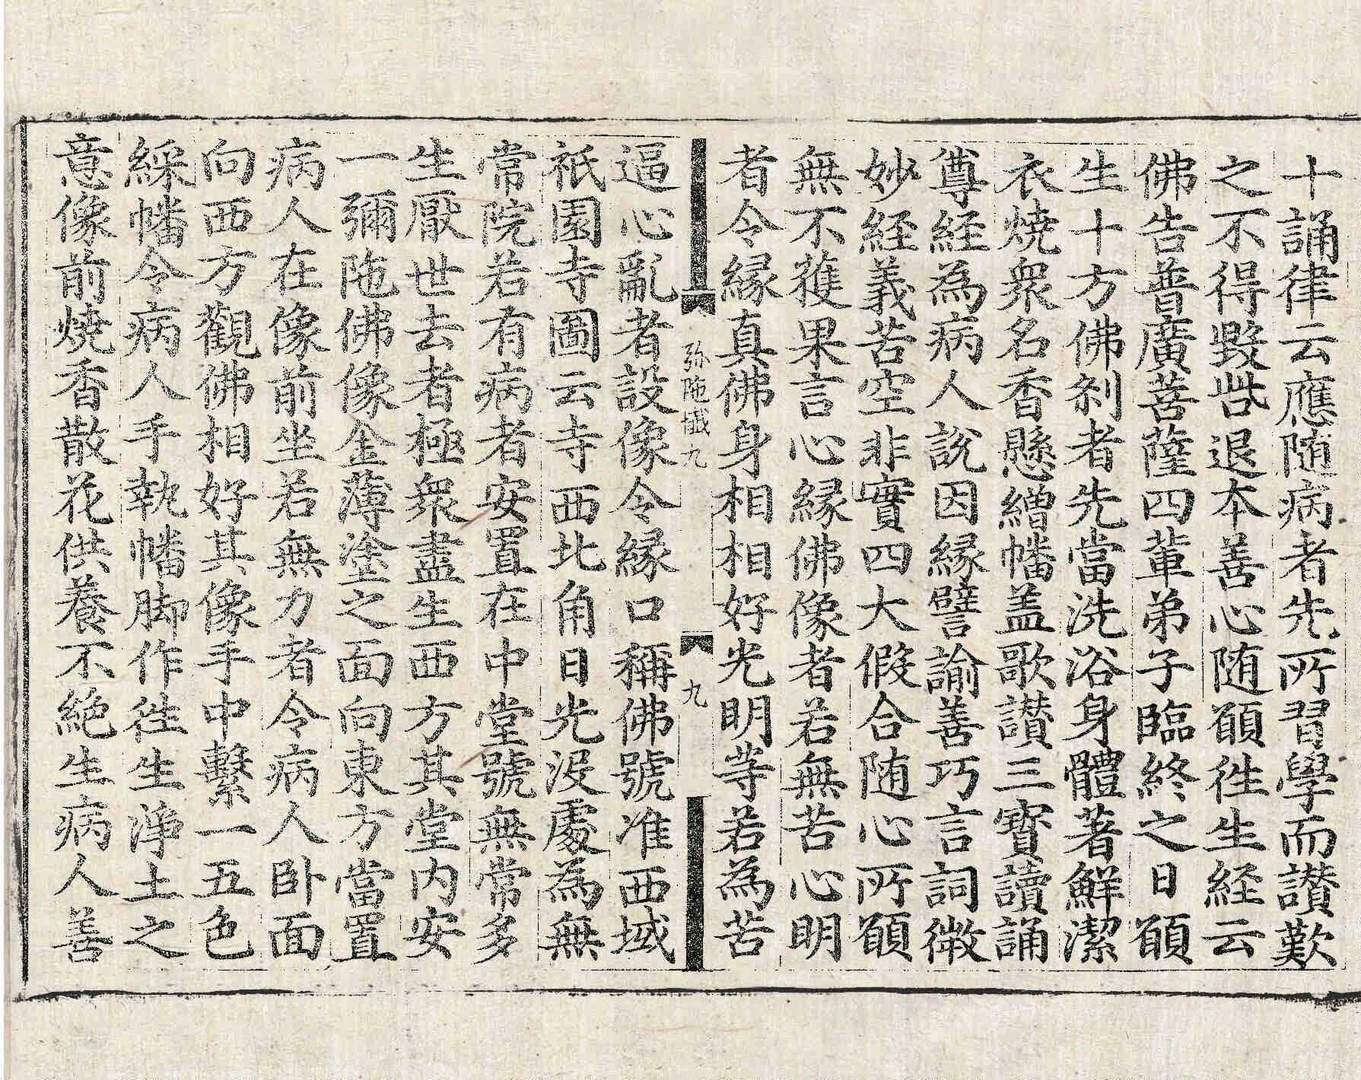 十誦律云應随病者先所習學而讃歎
之不得毀呰退本善心随願徃生経云
佛告普廣菩薩四輩弟子臨終之日願
生十方佛刹者先當洗浴身體著鮮潔
衣焼衆名香懸繒幡盖歌讃三寳讀誦
尊経為病人說因縁譬諭善巧言詞微
妙経義苦空非實四大假合随心所願
無不獲果言心縁佛像者若無苦心明
者令縁真佛身相相好光明等若為苦
弥陁懺九
九
逼心亂者設像令縁口稱佛號准西域
祇園寺圖云寺西北角日光没處為無
常院若有病者安置在中堂號無常多
生厭世去者極衆盡生西方其堂内安
一彌陁佛像金薄塗之面向東方當置
病人在像前坐若無力者令病人卧面
向西方觀佛相好其像手中繫一五色
綵幡令病人手執幡脚作徃生淨土之
意像前焼香散花供養不絶生病人善